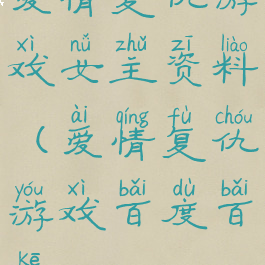 爱情复仇游
xì nǚ zhǔ zī liào
戏女主资料
ài qíng fù chóu
(爱情复仇
yóu xì bǎi dù bǎi
游戏百度百
kē